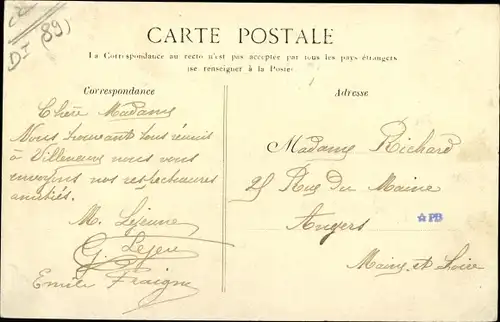 D-I (89)
CARTE POSTALE
La Correspondance au recto n'est pas acceptée par tous les pays étrangers
(se renseigner à la Poste)
Correspondance
Chère Madame
Nous trouvant tous réunis
à Villeneuve nous vous
envoyons nos respectueuses
amitiés.
M. Lejeune
G. Lejeu
Emile Fraigne
Adresse
Madame Richard
25 Rue du Maine
Angers
☆PB
Maine et Loire